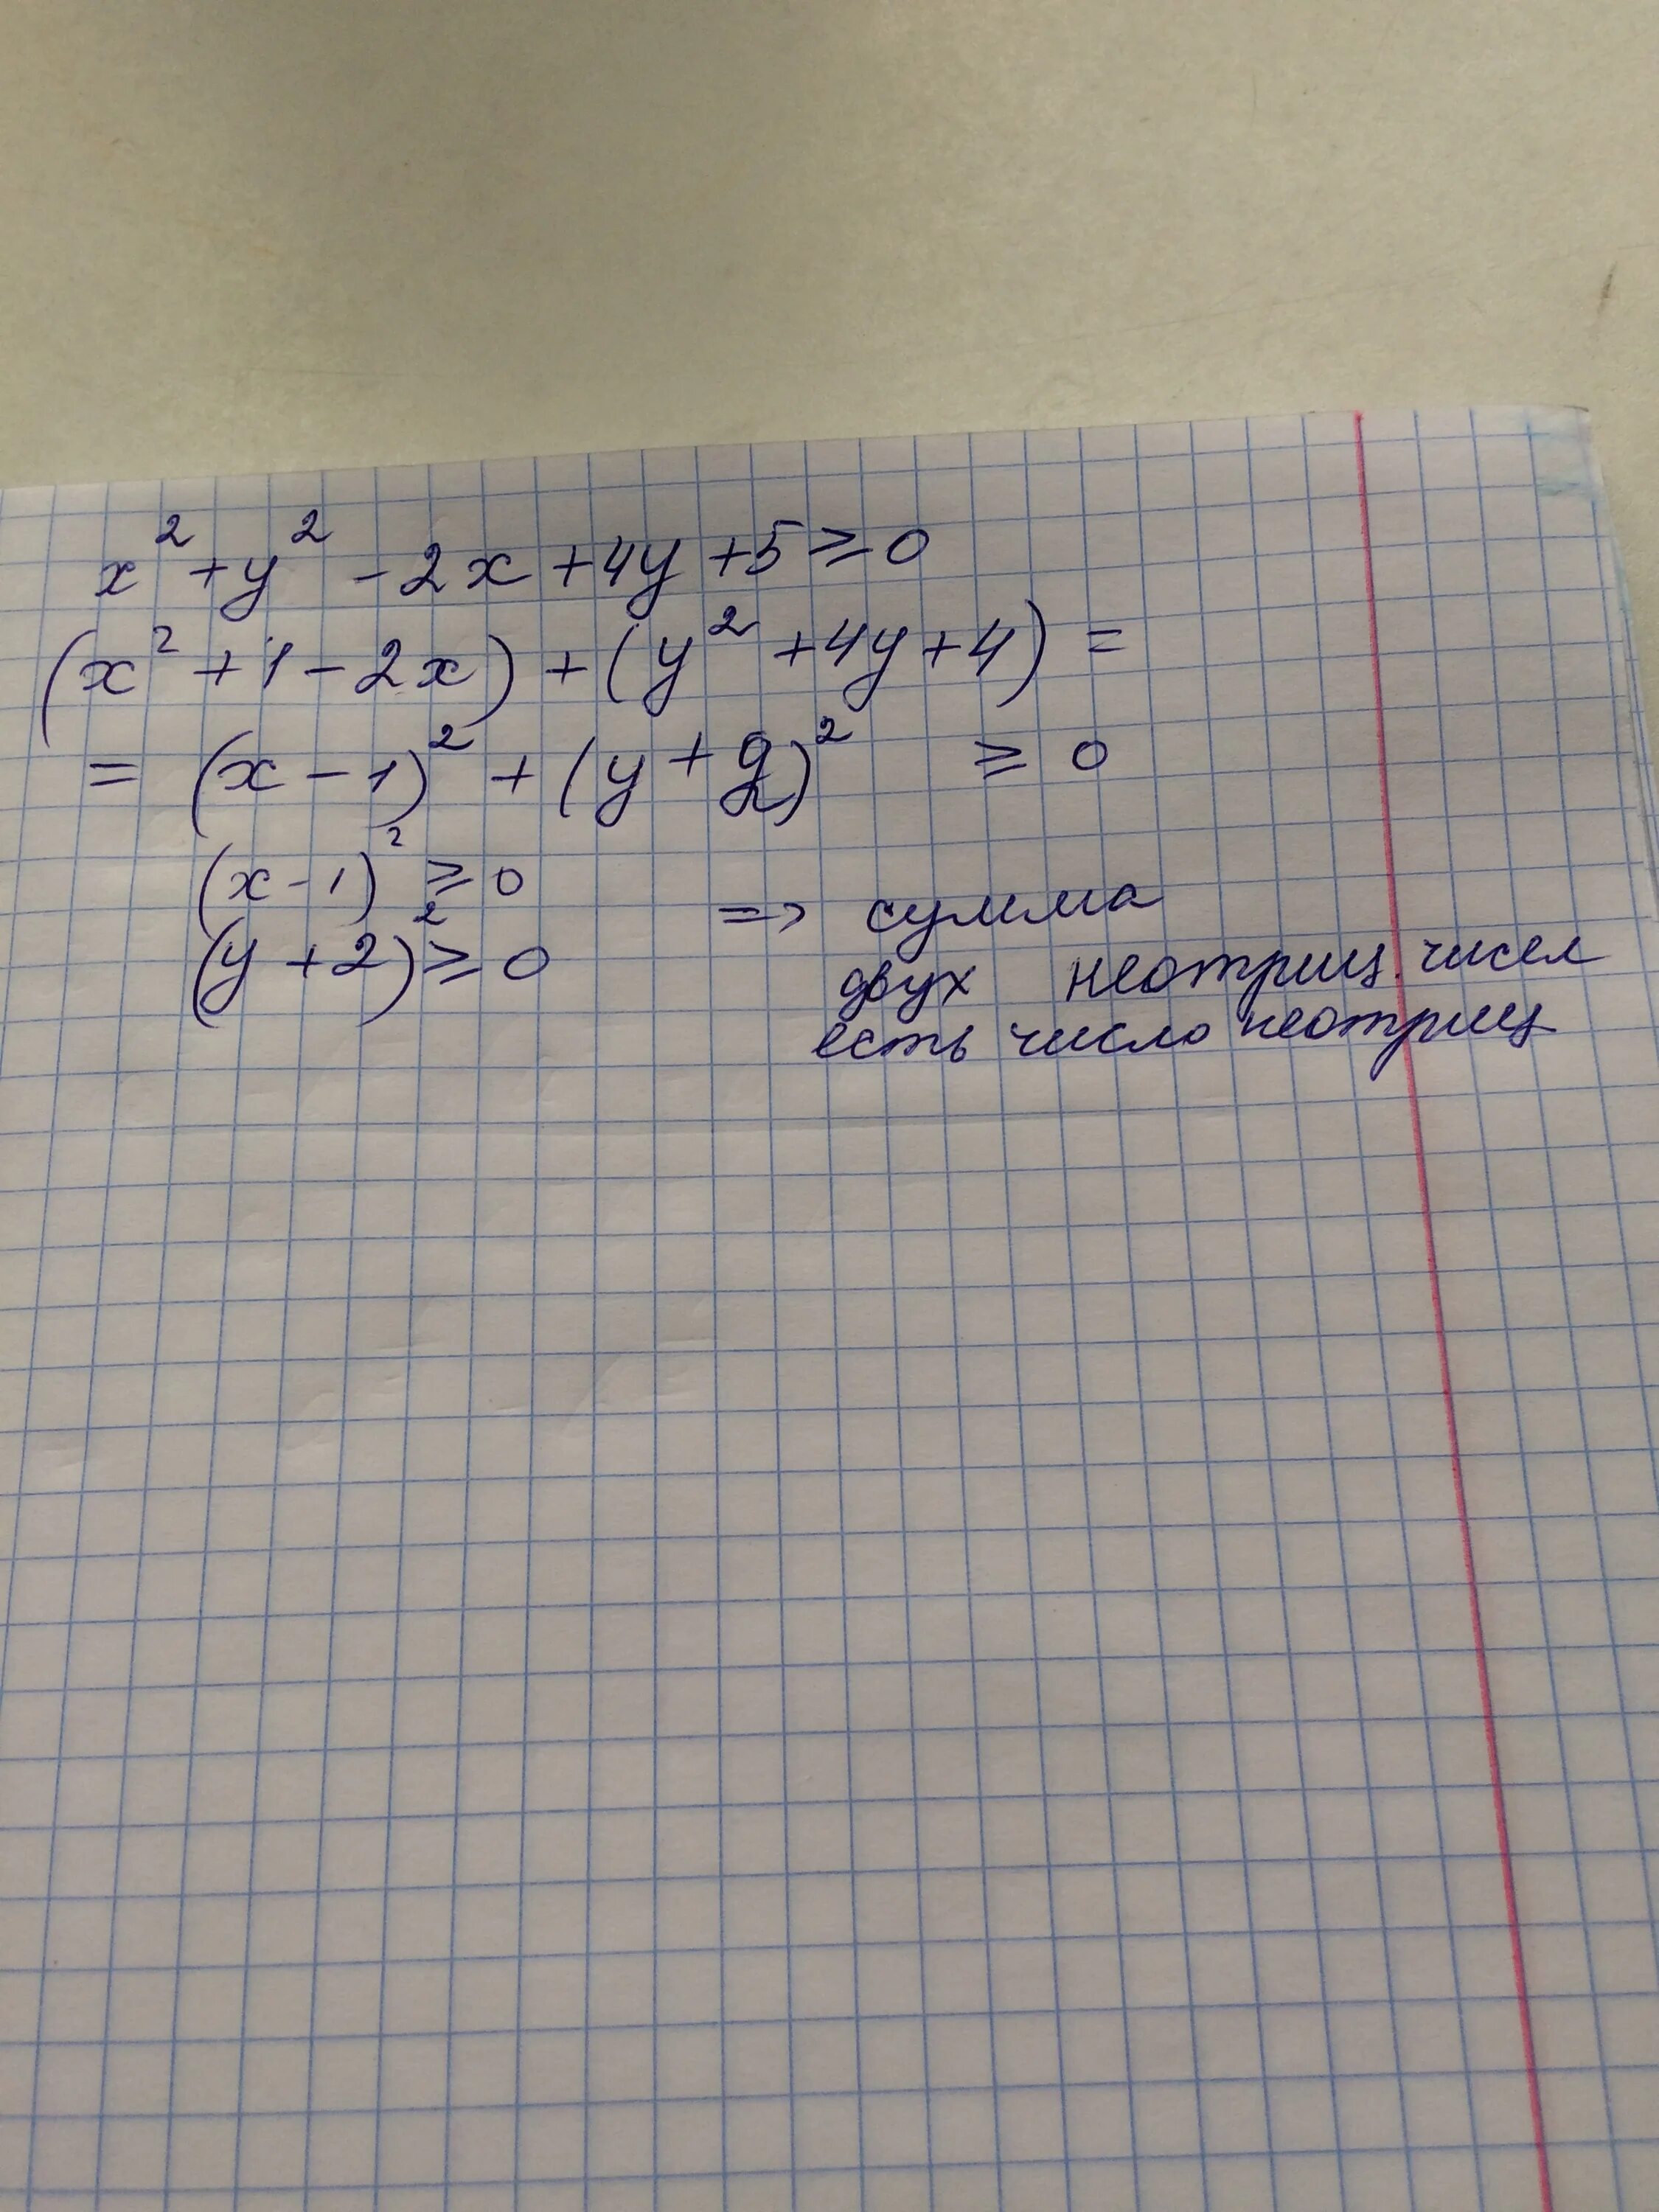 x² + y² - 2x + 4y + 5 ≥ 0
(x² + 1 - 2x) + (y² + 4y + 4) =
= (x - 1)² + (y + 2)² ≥ 0
(x - 1)² ≥ 0
(y + 2)² ≥ 0
=> сумма
двух неотриц. чисел
есть число неотриц